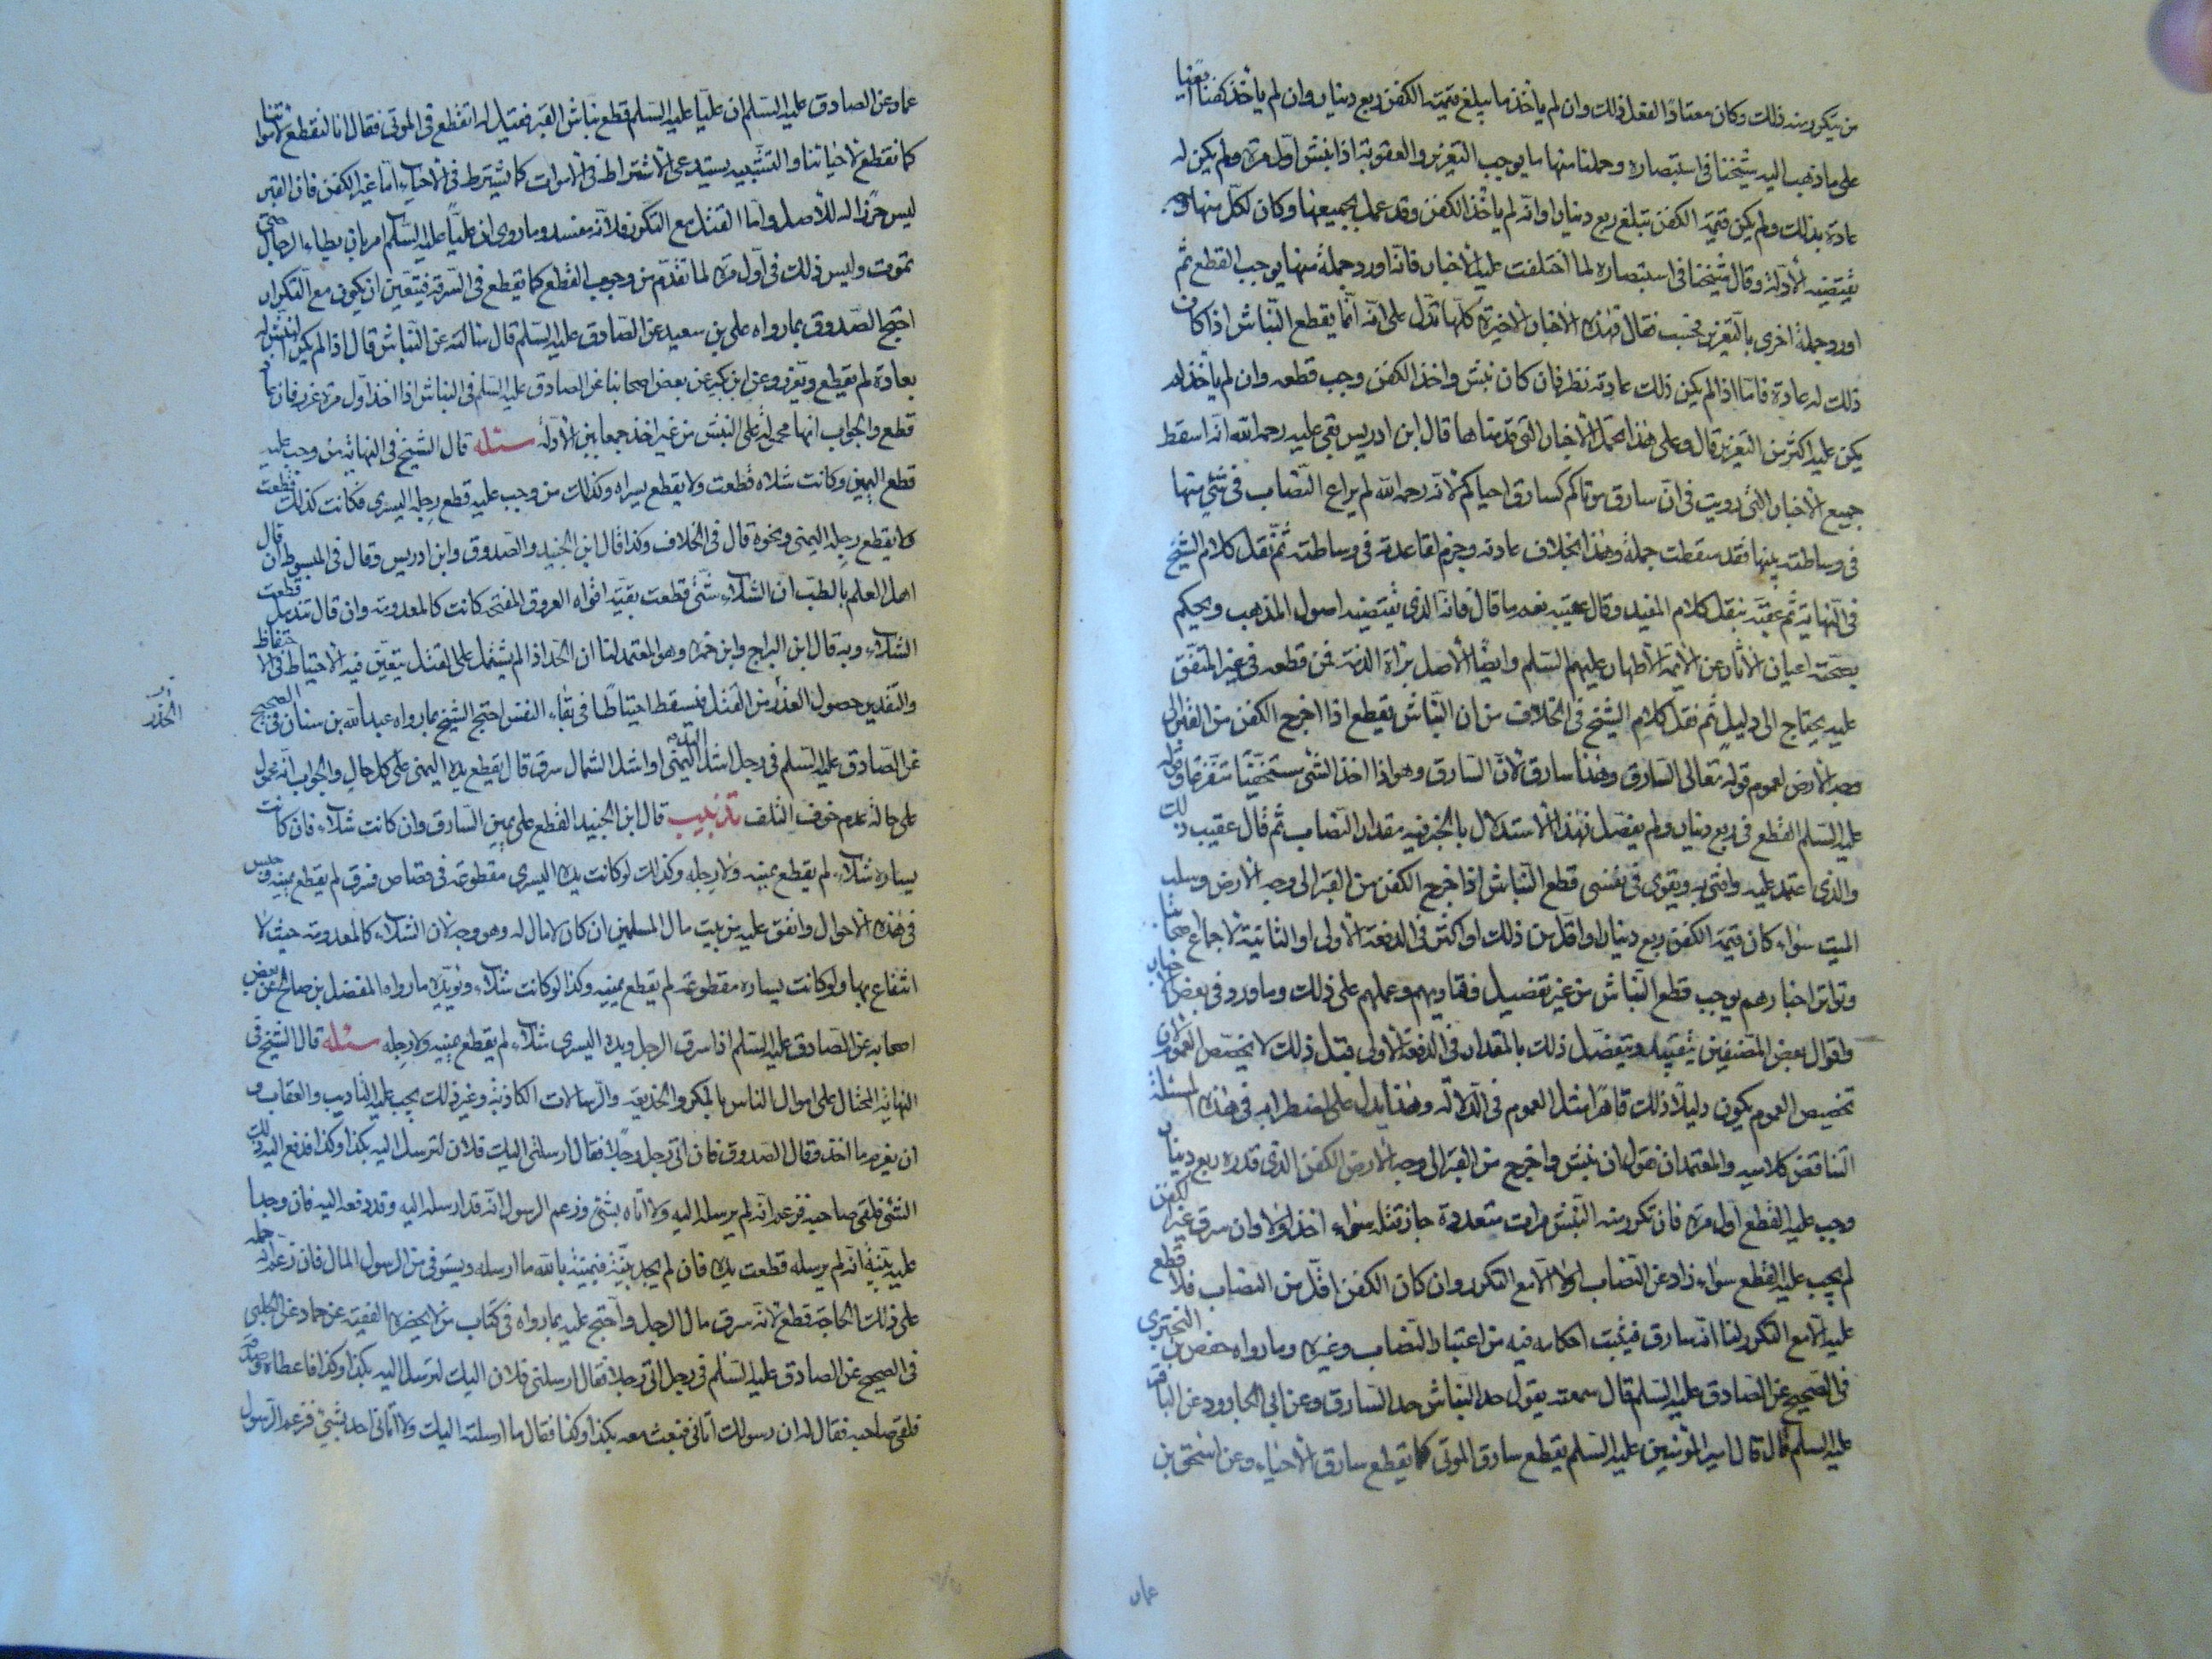 من يتكرر منه ذلك وكان معتادا لفعل ذلك وان لم ياخذ ما يبلغ قيمة الكفن ربع دينار وان لم ياخذ كفنا ايضا بقينا
على ما ذهب اليه شيخنا في استبصاره وحملنا منها ما يوجب التعزير والعقوبة اذا نبش اول مرة ولم يكن له
عادة بذلك ولم يكن قيمة الكفن تبلغ ربع دينار او انه لم ياخذ الكفن وقد عمل بجميعها وكان لكل منها وجه
يقتضيه الأدلة وقال شيخنا في استبصاره لما اختلفت عليه الأخبار فانه اورد جملة منها يوجب القطع ثم
اورد جملة اخرى بالتعزير فحسب فقال فهذه الأخبار الأخيرة كلها تدل على انه انما يقطع النباش اذا كان
ذلك له عادة فاما اذا لم يكن ذلك عادته نظر فان كان نبش واخذ الكفن وجب قطعه وان لم ياخذ لم
يكن عليه اكثر من التعزير قال وعلى هذا تحمل الأخبار التي قدمناها قال ابن ادريس بقي عليه رحمه الله انه اسقط
جميع الأخبار التي رويت في ان سارق موتاكم كسارق احياكم لأنه رحمه الله لم يراع النصاب في شئ منها
في وساطته بينها فقد سقطت جملة وهذا بخلاف عادته وخرم لقاعدته في وساطته ثم نقل كلام الشيخ
في النهاية ثم عقبه بنقل كلام المفيد وقال عقيبه نعم ما قال فانه الذي يقتضيه اصول المذهب ويحكم
بصحته اعيان الأثار عن الأئمة الأطهار عليهم السلم وايضا الأصل براة الذمة فمن قطعه في غير المتفق
عليه يحتاج الى دليل ثم نقل كلام الشيخ في الخلاف من ان النباش يقطع اذا اخرج الكفن من القبر الى
وجه الأرض لعموم قوله تعالى السارق وهذا سارق لأن السارق وهو اذا اخذ الشئ مستخفيا متفزعا وقوله
عليه السلم القطع في ربع دينار ولم يفصل فهذا الاستدلال بالخبر فيه مقدار النصاب ثم قال عقيب ذلك
والذي اعتمد عليه وافتى به ويقوى في نفسي قطع النباش اذا اخرج الكفن من القبر الى وجه الأرض وسلب
الميت سواء كان قيمة الكفن ربع دينار او اقل من ذلك او اكثر في الدفعة الأولى او الثانية لاجماع اصحابنا
وتواتر اخبارهم يوجب قطع النباش من غير تفصيل وفتاويهم وعملهم على ذلك وما ورد في بعض الاخبار
واقوال بعض المصنفين بتقييد وبتفصيل ذلك بالمقدار في الدفعة الأولى فمثل ذلك لا يخصص العموم لان
تخصيص العموم يكون دليلا ذلك قاهرا مثل العموم في الدلالة وهذا يدل على اضطرابه في هذه المسئلة
التناقض كلاميه والمعتمد ان نقول ان نبش واخرج من القبر الى وجه الأرض الكفن الذي قدره ربع دينار
وجب عليه القطع اول مرة فان تكرر منه النبش مرات متعددة جاز قتله سواء اخذ اولا وان سرق غير الكفن
لم يجب عليه القطع سواء زاد عن النصاب اولا الا مع التكرر وان كان الكفن اقل من النصاب فلا قطع
عليه الا مع التكرر لنا انه سارق فيثبت احكامه فيه من اعتبار النصاب وغيره وما رواه حفص بن البختري
في الصحيح عن الصادق عليه السلم قال سمعته يقول حد النباش حد السارق وعن ابي الجارود عن الباقر
عليه السلم قال قال امير المؤمنين عليه السلم يقطع سارق الموتى كما يقطع سارق الأحياء وعن اسحق بن
عمار
عمار عن الصادق عليه السلم ان عليا عليه السلم قطع نباش القبر فقيل له اتقطع في الموتى فقال انا لنقطع لأمواتنا
كما نقطع لأحيائنا والتشبيه يستدعي الأشتراط في الأموات كما يشترط في الأحياء اما غير الكفن فان القبر
ليس حرزا له للأصل واما القتل مع التكرر فلأنه مفسد وما روي ان عليا عليه السلم امر بان يطاء الرجال حتى
تموت وليس ذلك في اول مرة لما تقدم من وجوب القطع كما يقطع في السرقة فيتعين ان يكون مع التكرار
احتج الصدوق بما رواه علي بن سعيد عن الصادق عليه السلم قال سالته عن النباش قال اذا لم يكن النبش له
بعادة لم يقطع ويعزر وعن ابن بكير عن بعض اصحابنا عن الصادق عليه السلم في النباش اذا اخذ اول مرة عزر فان عاد
قطع والجواب انها محمولة على النبش من غير اخذ جمعا بين الأدلة مسئلة قال الشيخ في النهاية من وجب عليه
قطع اليمين وكانت شلاء قطعت ولا يقطع يسراه وكذلك من وجب عليه قطع رجله اليسرى فكانت كذلك قطعت
لا يقطع رجله اليمنى ونحوه قال في الخلاف وكذا قال ابن الجنيد والصدوق وابن ادريس وقال في المبسوط ان قال
اهل العلم بالطب ان الشلاء متى قطعت بقيت افواه العروق المفتحة كانت كالمعدومة وان قال تندمل قطعت
الشلاء وبه قال ابن البراج وابن حمزة وهو المعتمد لنا ان الحد اذا لم يشتمل على القتل يتعين فيه الأحتياط في الاحتفاظ
والتقدير حصول الحذر من القتل فيسقط احتياطا في بقاء النفس احتج الشيخ بما رواه عبد الله بن سنان في الصحيح
عن الصادق عليه السلم في رجل اشل اليد اليمنى او اشل الشمال سرق قال يقطع يده اليمنى على كل حال والجواب انه محمول
على حالة عدم خوف التلف تذنيب قال ابن الجنيد القطع على يمين السارق وان كانت شلاء فان كانت
يساره شلاء لم يقطع يمينه ولا رجله وكذلك لو كانت يده اليسرى مقطوعة في قصاص فسرق لم يقطع يمينه وحبس
في هذه الأحوال وانفق عليه من بيت مال المسلمين ان كان لا مال له وهو وجه لان الشلاء كالمعدومة حيث لا
انتفاع بها ولو كانت يساره مقطوعة لم يقطع يمينه وكذا لو كانت شلاء ويؤيده ما رواه المفضل بن صالح عن بعض
اصحابه عن الصادق عليه السلم اذا سرق الرجل ويده اليسرى شلاء لم يقطع يمينه ولا رجله مسئلة قال الشيخ في
النهاية المحتال على اموال الناس بالمكر والخديعة والرسالات الكاذبة وغير ذلك يجب عليه التاديب والعقاب و
ان يغرم ما اخذ وقال الصدوق فان اتى رجل رجلا فقال ارسلني اليك فلان لترسل اليه بكذا وكذا فدفع اليه ذلك
الشئ فلقي صاحبه فزعم انه لم يرسله اليه ولا اتاه بشئ وزعم الرسول انه قد ارسله اليه وقد دفعه اليه فان وجد
عليه بينة انه لم يرسله قطعت يده فان لم يجد بينة فيمينه بالله ما ارسله ويستوفي من الرسول المال فان زعم انه حمله
على ذلك الحاجة قطع لأنه سرق مال الرجل واحتج عليه بما رواه في كتاب من لا يحضره الفقيه عن حماد عن الحلبي
في الصحيح عن الصادق عليه السلم في رجل اتى رجلا فقال ارسلني فلان اليك لترسل اليه بكذا وكذا فاعطاه وصدقه
فلقي صاحبه فقال له ان رسولك اتاني فبعثت معه بكذا وكذا فقال ما ارسلته اليك ولا اتاني احد بشئ فزعم الرسول